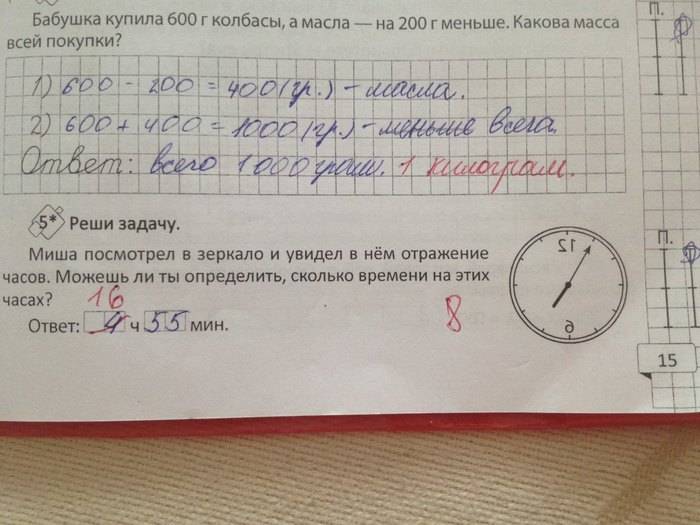 Бабушка купила 600 г колбасы, а масла — на 200 г меньше. Какова масса
всей покупки?
1) 600 - 200 = 400 (гр.) - масла.
2) 600 + 400 = 1000 (гр.) - меньше всего.
Ответ: всего 1000 грам. 1 килограм.
5* Реши задачу.
Миша посмотрел в зеркало и увидел в нём отражение
часов. Можешь ли ты определить, сколько времени на этих
часах?
16
Ответ: 4 ч 55 мин.
8
12
6
П.
П.
15